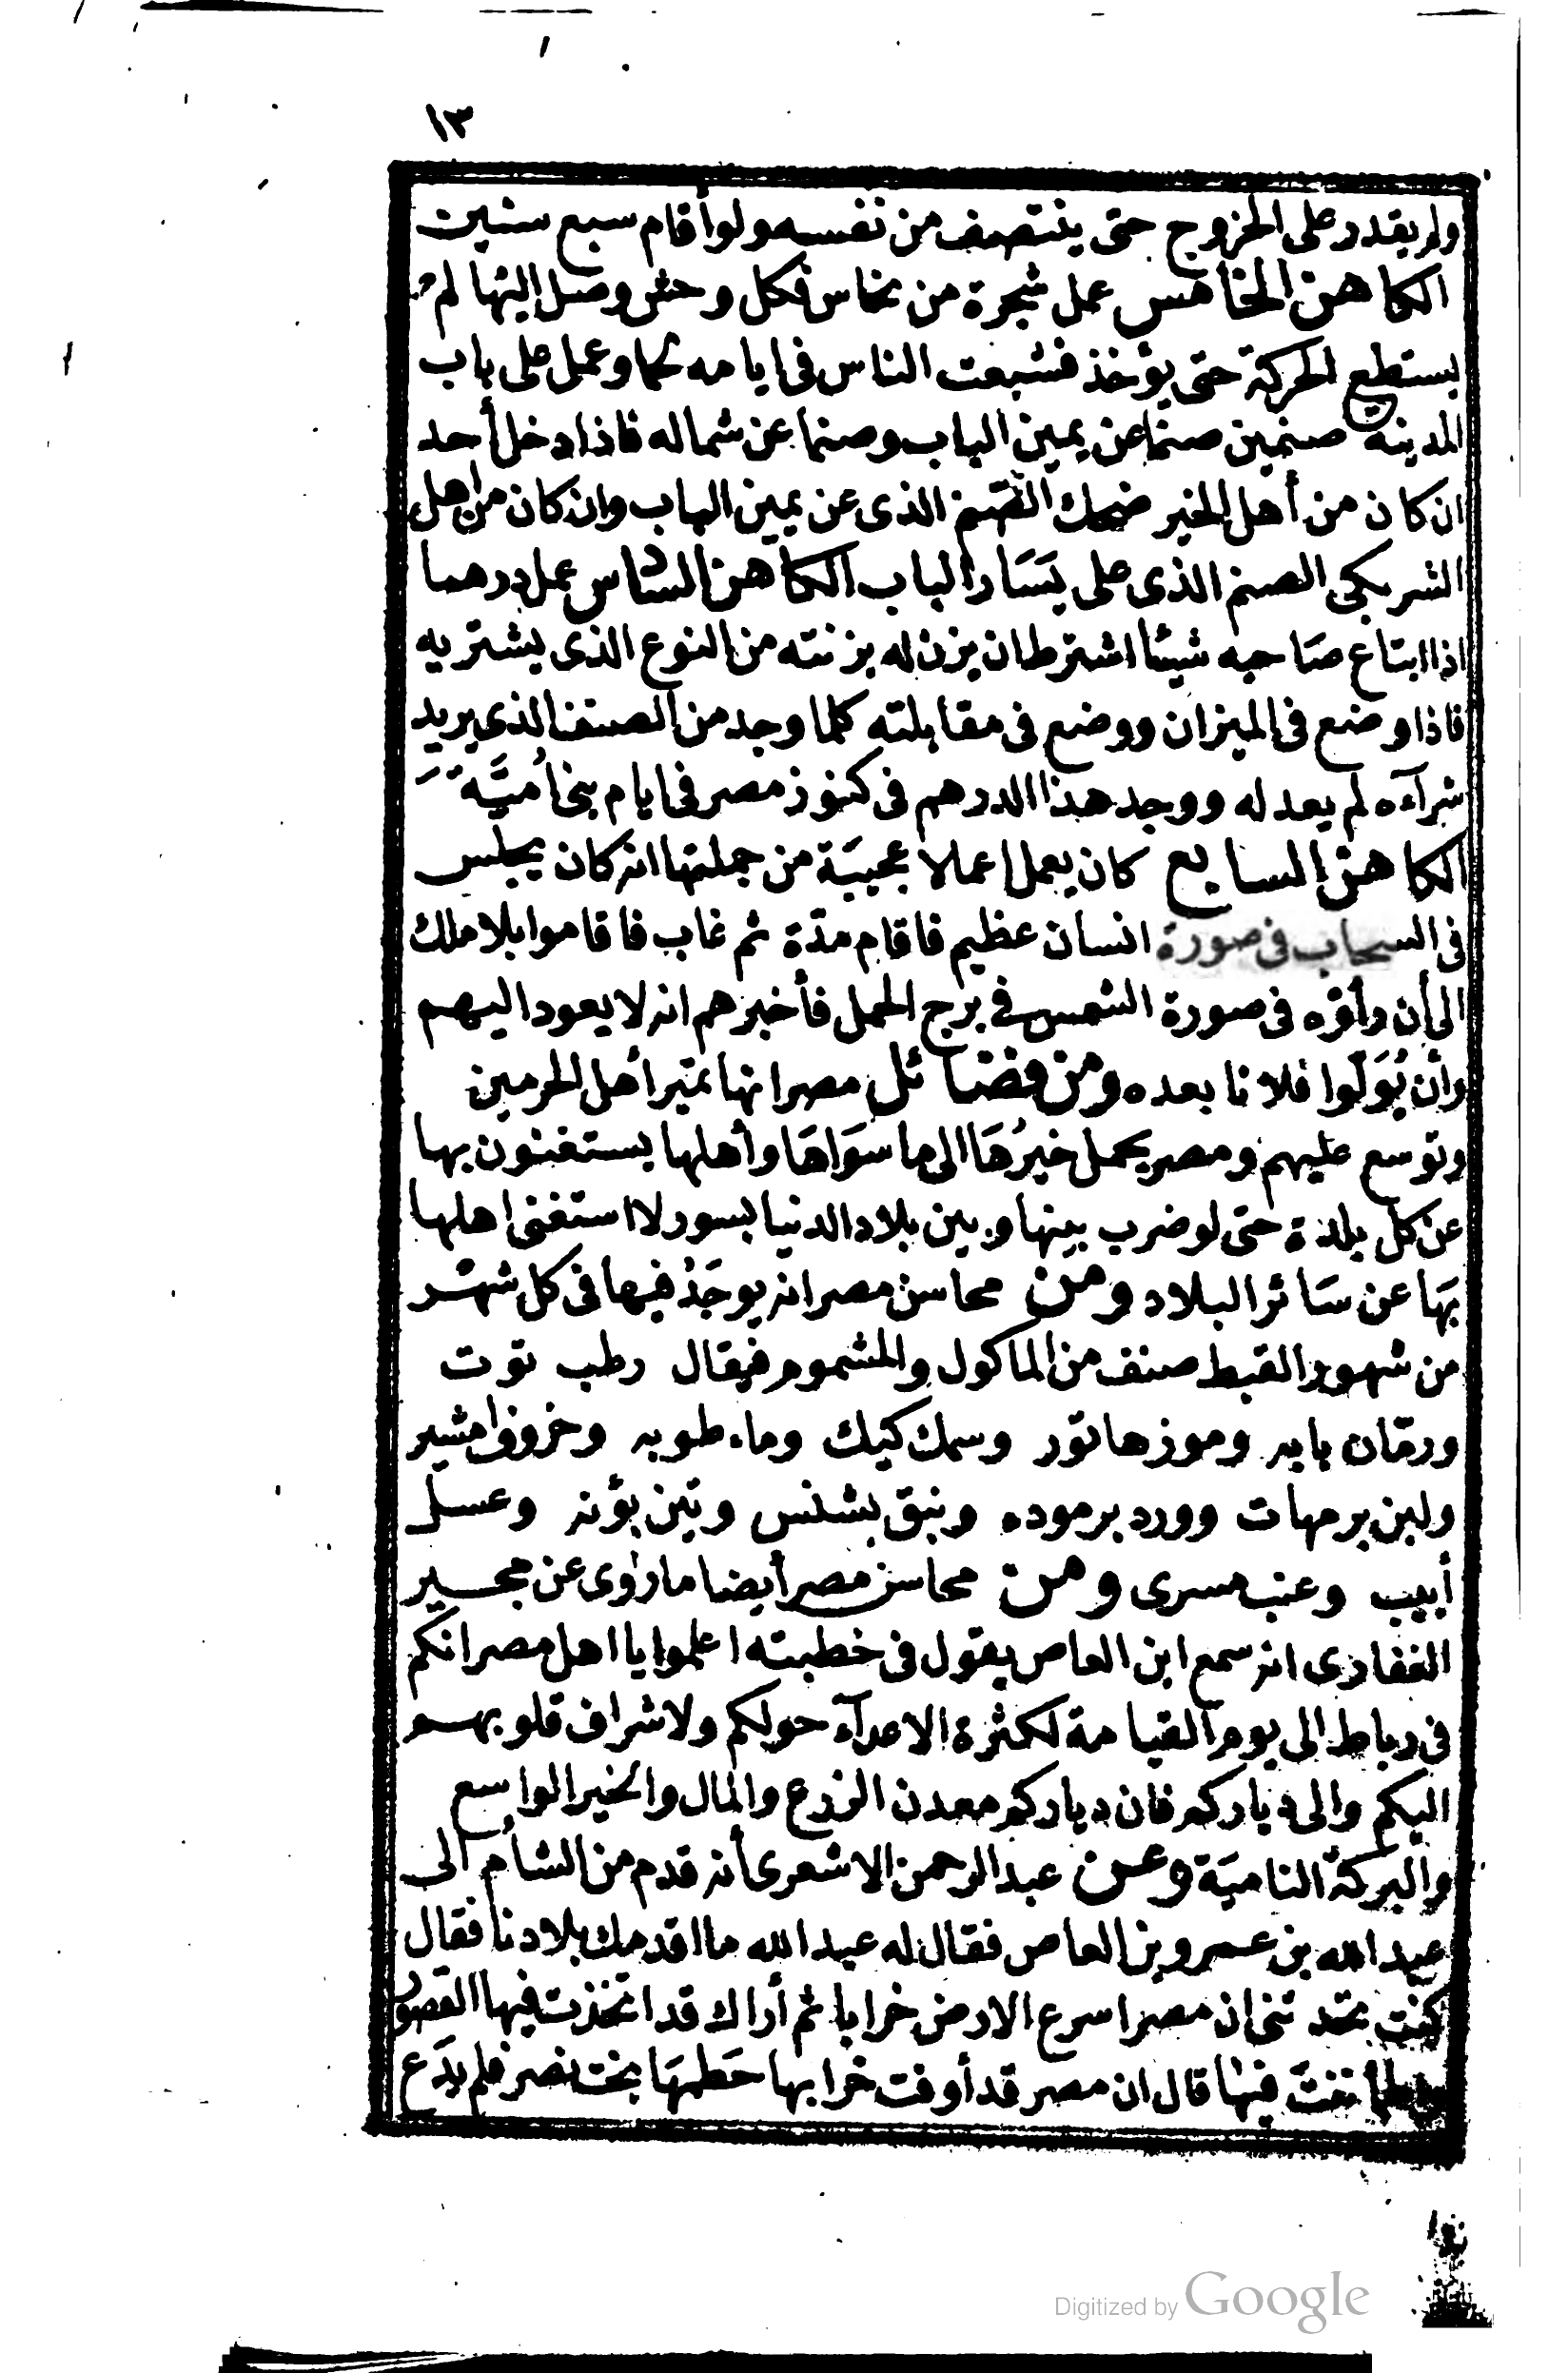 ١٣
ولم يقدر على الخروج حتى ينتصف من نفسه ولو أقام سبع سنين
الكاهن الخامس عمل شجرة من نحاس فكل وحش وصل اليها لم
يستطع الحركة حتى يؤخذ فشبعت الناس فى ايامه لحما وعمل على باب
المدينة صنمين صنما عن يمين الباب وصنما عن شماله فاذا دخل أحد
ان كان من أهل الخير ضحك الصنم الذى عن يمين الباب وان كان من اهل
الشر بكى الصنم الذى على يسَار الباب الكاهن السادس عمل درهما
اذا ابتاع صَاحبه شيئا اشترط ان يزن له بزنته من النوع الذى يشتريه
فاذا وضع فى الميزان ووضع فى مقابلته كلما وجد من الصنف الذى يريد
شرآءه لم يعدله ووجد هذا الدرهم فى كنوز مصر فى ايام بنى أُميَّة
الكاهن السابع كان يعمل اعمالا عجيبَة من جملتها انه كان يجلس
فى السحاب فى صورة انسان عظيم فاقام مدّة ثم غاب فاقاموا بلا ملك
الى أن رأوه فى صورة الشمس فى برج الحمل فأخبرهم انه لا يعود اليهم
وأن يُوَلّوا فلانا بعده ومن فضائل مصر انها تمير أهل الحرمين
وتوسع عليهم ومصر يحمل خيرُهَا الى ما سوَاهَا وأهلها يستغنون بها
عن كل بلدة حتى لو ضرب بينها وبين بلاد الدنيا بسور لا استغنى اهلها
بهَا عن سَائر البلاد ومن محاسن مصر انه يوجَدُ فيها فى كل شهر
من شهور القبط صنف من الماكول والمشموم فيقال رطب توت
ورمّان بابه وموز هاتور وسمك كيك وماء طوبه وخروف امشير
ولبن برمهات وورد برموده ونبق بشنس وتين بؤنه وعسل
أبيب وعنب مسرى ومن محاسن مصر أيضا ما روى عن مجير
الغفارى انه سمع ابن العاص يقول فى خطبته اعلموا يا اهل مصر انكم
فى رباط الى يوم القيامة لكثرة الاعدآء حولكم ولاشراف قلوبهم
اليكم والى دياركم فان دياركم معدن الزرع والمال والخير الواسع
والبركة الناميَة وعن عبد الرحمن الاشعرى أنه قدم من الشأم الى
عبد الله بن عمرو بن العاص فقال له عبد الله ما اقدمك بلادنا فقال
كنت تحدثنى ان مصر اسرع الارض خرابا ثم أراك قد اتخذت فيها القصور
واطمأننتَ فيها قال ان مصر قد أوفت خرابها حَطمهَا بخت نصر فلم يدَع
Digitized by Google